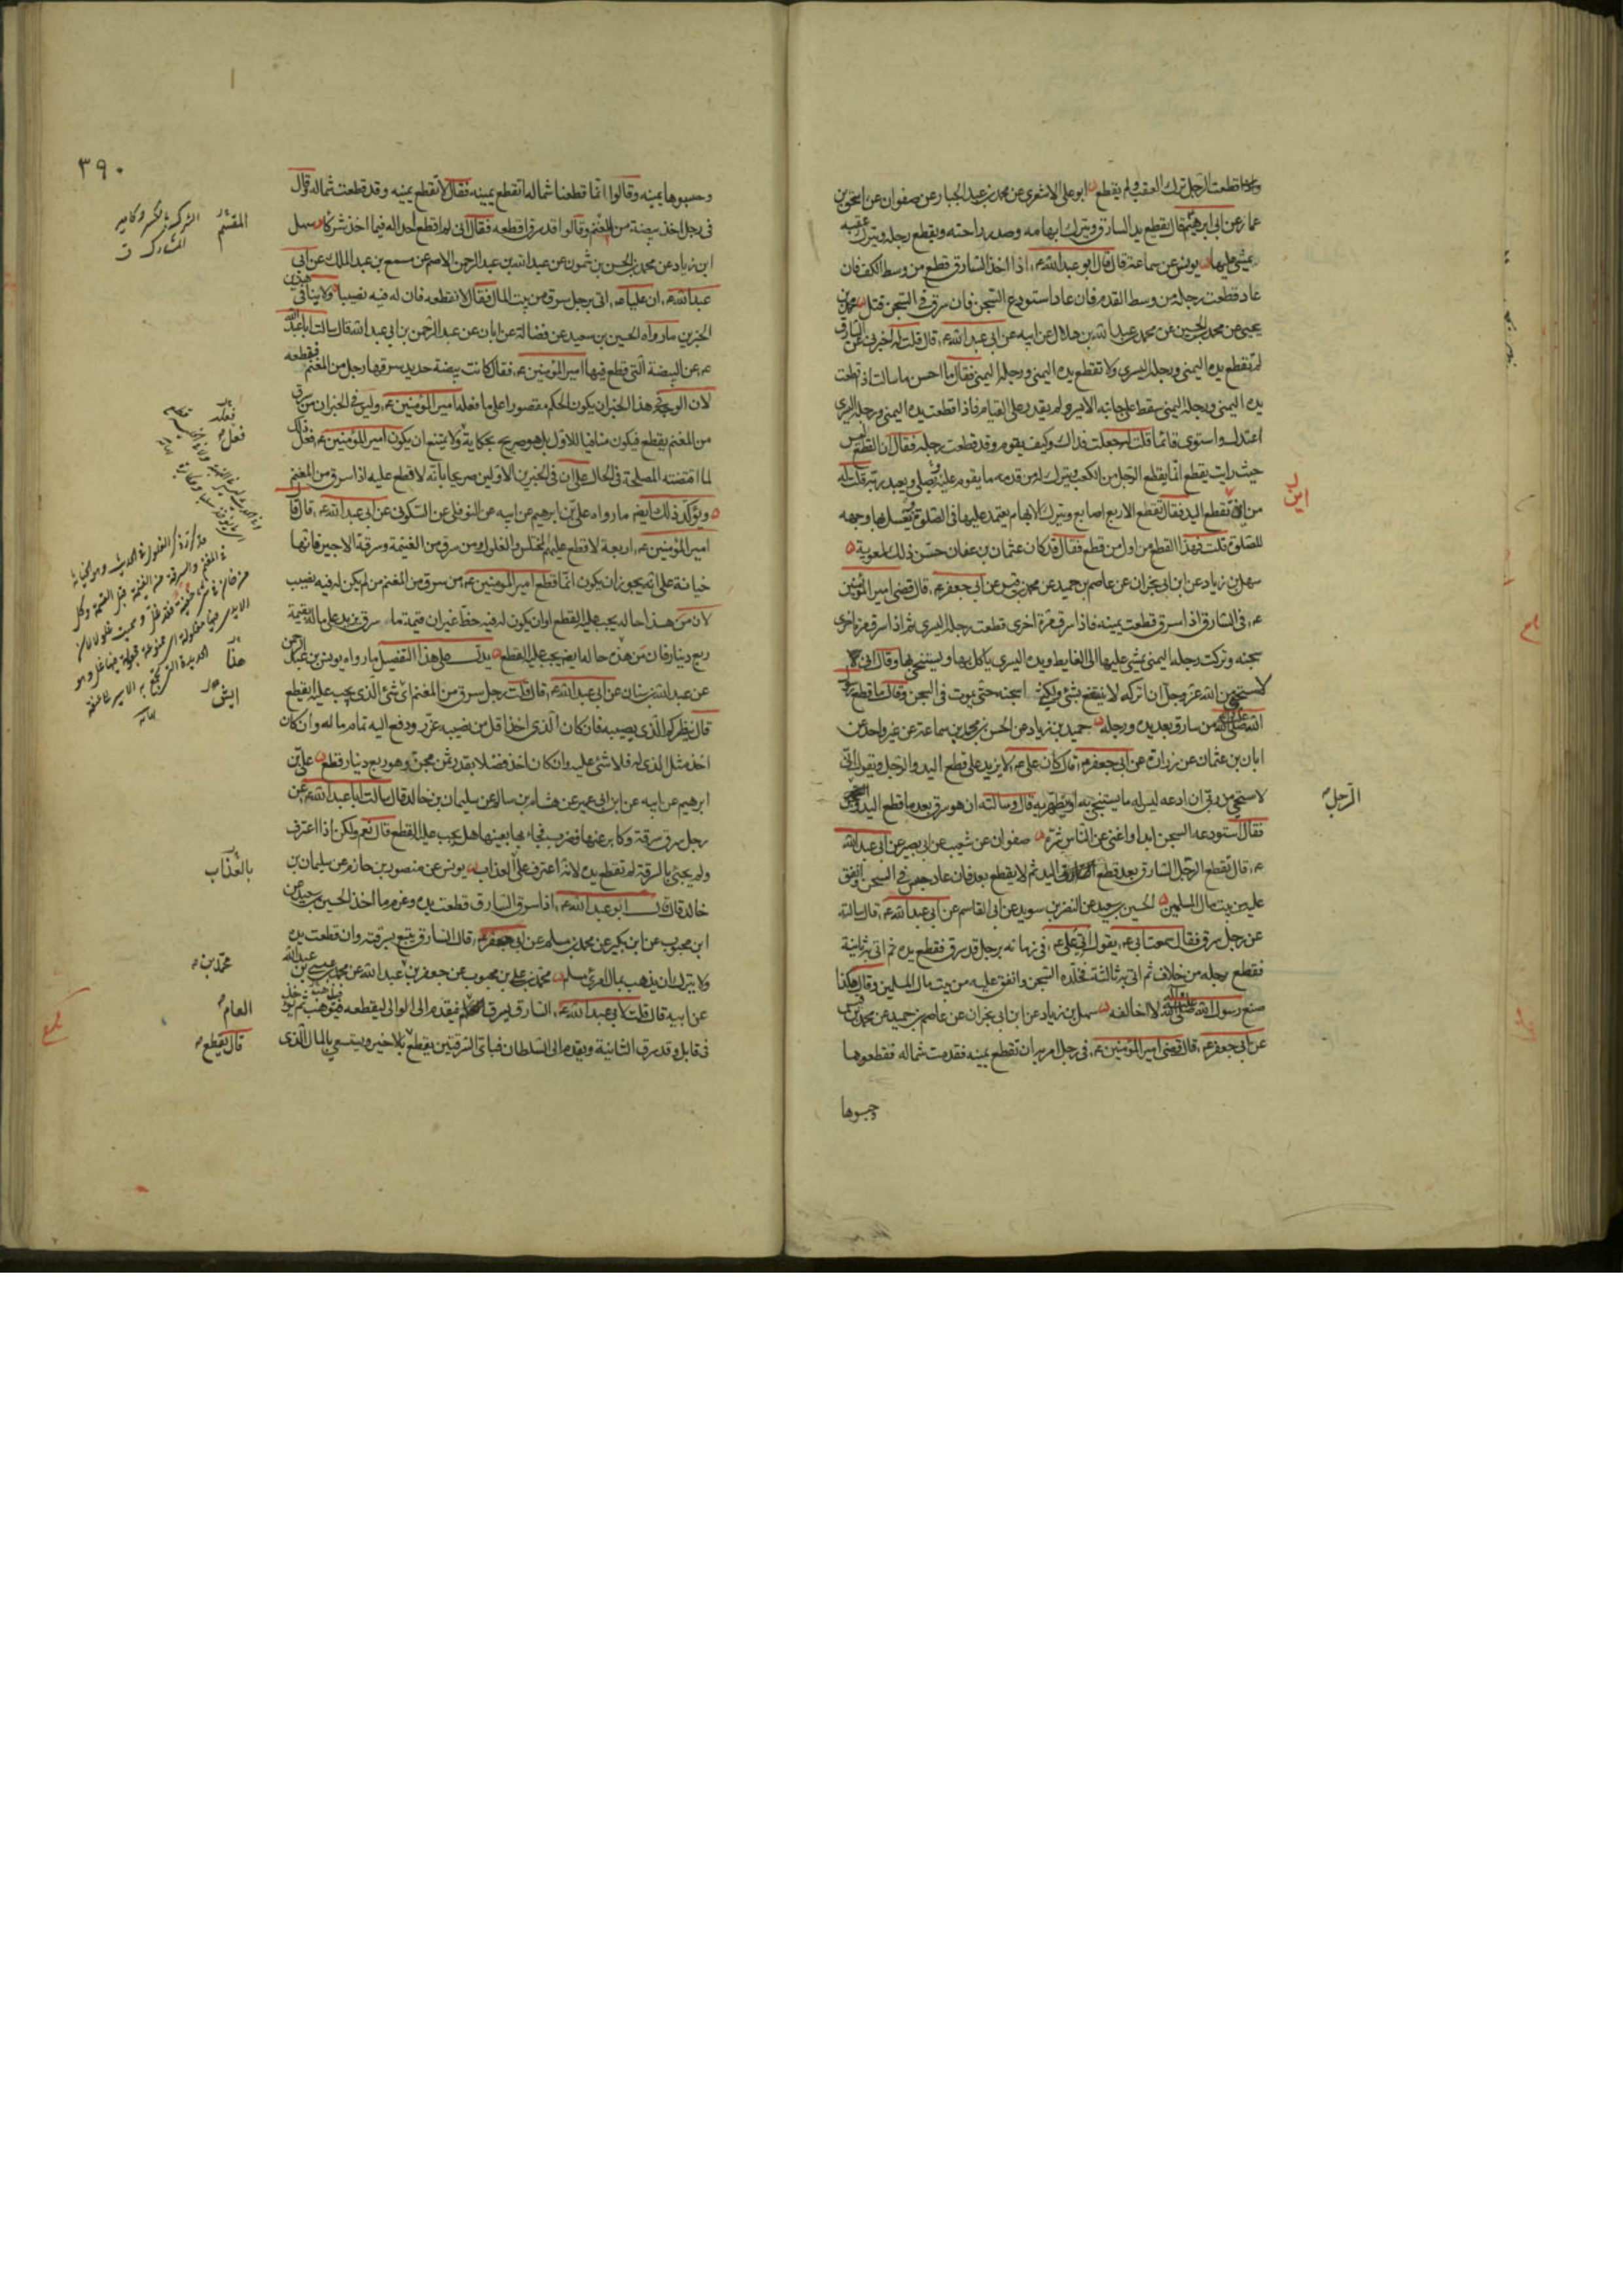 واذا قطعت الرجل ترك العقب ولم يقطع ابو علي الاشعري عن محمد بن عبد الجبار عن صفوان عن اسحق بن
عمار عن ابي ابرهيم قال يقطع يد السارق ويترك ابهامه وصدر راحته ويقطع رجله ويترك عقبه
يمشي عليها يونس عن سماعة قال قال ابو عبد الله ع اذا اخذ السارق قطع من وسط الكف فان
عاد قطعت رجله من وسط القدم فان عاد استودع السجن فان سرق في السجن قتل محمد بن
يحيى عن محمد بن الحسين عن محمد بن عبد الله بن هلال عن ابيه عن ابي عبد الله ع قال قلت له اخبرني عن السارق
لم تقطع يده اليمنى ورجله اليسرى ولا تقطع يده اليمنى ورجله اليمنى فقال ما احسن ما سالت اذا قطعت
يده اليمنى ورجله اليمنى سقط على جانبه الايسر ولم يقدر على القيام فاذا قطعت يده اليمنى ورجله اليسرى
اعتدل واستوى قائما قلت له جعلت فداك وكيف يقوم وقد قطعت رجله فقال ان القطع ليس
حيث رايت يقطع انما يقطع الرجل من الكعب ويترك له من قدمه ما يقوم عليه ويصلي ويعبد ربه قلت له
من اين تقطع اليد فقال تقطع الاربع اصابع ويترك الابهام يعتمد عليها في الصلوة ويغسل بها وجهه
للصلوة قلت فهذا القطع من اول من قطع فقال قد كان عثمان بن عفان حسن ذلك لمعوية
سهل بن زياد عن ابن ابي نجران عن عاصم بن حميد عن محمد بن قيس عن ابي جعفر ع قال قضى امير المؤمنين
ع في السارق اذا سرق قطعت يمينه فاذا سرق مرة اخرى قطعت رجله اليسرى ثم اذا سرق مرة اخرى
سجنه وتركت رجله اليمنى يمشي عليها الى الغايط ويده اليسرى ياكل بها ويستنجي بها وقال اني
لاستحيي من الله عز وجل ان اتركه لا ينتفع بشئ ولكني اسجنه حتى يموت في السجن وقال ما قطع رسول
الله صلى الله عليه واله من سارق بعد يده ورجله حميد بن زياد عن الحسن بن محمد بن سماعة عن غير واحد عن
ابان بن عثمان عن زرارة عن ابي جعفر ع قال كان علي ع لا يزيد على قطع اليد والرجل ويقول اني
لاستحيي من ربي ان ادعه ليس له ما يستنجي به او يتطهر به قال وسالته ان هو سرق بعد ما قطع اليد والرجل
فقال استودعه السجن ابدا واغني عن الناس شره صفوان عن شعيب عن ابي بصير عن ابي عبد الله
ع قال تقطع الرجل السارق بعد قطع اليد ثم لا يقطع بعد فان عاد حبس في السجن وانفق
عليه من بيت مال المسلمين الحسين بن سعيد عن النضر بن سويد عن ابي القاسم عن ابي عبد الله ع قال سالته
عن رجل سرق فقال سمعت ابي ع يقول اتي علي ع في زمانه برجل قد سرق فقطع يده ثم اتي به ثانية
فقطع رجله من خلاف ثم اتي به ثالثة فخلده السجن وانفق عليه من بيت مال المسلمين وقال هكذا
صنع رسول الله صلى الله عليه واله لا اخالفه سهل بن زياد عن ابن ابي نجران عن عاصم بن حميد عن محمد بن قيس
عن ابي جعفر ع قال قضى امير المؤمنين ع في رجل امر به ان تقطع يمينه فقدمت شماله فقطعوها
وحسبوها
اين
الرجل
٣٩٠
وحسبوها يمينه وقالوا انما قطعنا شماله اتقطع يمينه فقال لا تقطع يمينه وقد قطعت شماله وقال
في رجل اخذ بيضة من المغنم وقالوا قد سرق اقطعه فقال اني لم اقطع احدا له فيما اخذ شرك سهل
ابن زياد عن محمد بن الحسن بن شمون عن عبد الله بن عبد الرحمن الاصم عن مسمع بن عبد الملك عن ابي
عبد الله ع ان عليا ع اتي برجل سرق من بيت المال فقال لا تقطعه فان له فيه نصيبا ولا ينافي هذين
الخبرين ما رواه الحسين بن سعيد عن فضالة عن ابان عن عبد الرحمن بن ابي عبد الله قال سالت ابا عبد الله
ع عن البيضة التي قطع فيها امير المؤمنين ع فقال كانت بيضة حديد سرقها رجل من المغنم فقطعه
لان الوجه في هذا الخبر ان يكون الحكم مقصورا على ما فعله امير المؤمنين ع وليس في الخبر ان من سرق
من المغنم يقطع فيكون منافيا للاول بل هو صريح بحكاية ولا يمتنع ان يكون امير المؤمنين ع فعل ذلك
لما اقتضته المصلحة في الحال على ان في الخبرين الاولين صريحا بانه لا قطع عليه اذا سرق من المغنم
ويؤكد ذلك ايضا ما رواه علي بن ابرهيم عن ابيه عن النوفلي عن السكوني عن ابي عبد الله ع قال قال
امير المؤمنين ع اربعة لا قطع عليهم المختلس والغلول ومن سرق من الغنيمة وسرقة الاجير فانها
خيانة على انه يجوز ان يكون انما قطع امير المؤمنين ع من سرق من المغنم من لم يكن له فيه نصيب
لان من هذا حاله يجب عليه القطع او ان يكون له فيه حظ غير ان قيمة ما سرق يزيد على ماله بقيمة
ربع دينار فان من هذه حاله ايضا يجب عليه القطع يدل على هذا التفصيل ما رواه يونس بن عبد الرحمن
عن عبد الله بن سنان عن ابي عبد الله ع قال قلت رجل سرق من المغنم اي شئ الذي يجب عليه ايقطع
قال ينظر كم الذي يصيبه فان كان الذي اخذ اقل من نصيبه عزر ودفع اليه تمام ماله وان كان
اخذ مثل الذي له فلا شئ عليه وان كان اخذ فضلا بقدر ثمن مجن وهو ربع دينار قطع علي بن
ابرهيم عن ابيه عن ابن ابي عمير عن هشام بن سالم عن سليمان بن خالد قال سالت ابا عبد الله ع عن
رجل سرق سرقة وكابر عنها فضرب فجاء بها بعينها هل يجب عليه القطع قال نعم ولكن اذا اعترف
ولم يجئ بالسرقة لم تقطع يده لانه اعترف على العذاب يونس عن منصور بن حازم عن سليمان بن
خالد قال قال ابو عبد الله ع اذا سرق السارق قطعت يده وغرم ما اخذ الحسين بن سعيد عن
ابن محبوب عن ابن بكير عن محمد بن مسلم عن ابي جعفر ع قال السارق يتبع بسرقته وان قطعت يده
ولا يترك ان يذهب بمال امرئ مسلم محمد بن علي بن محبوب عن جعفر بن عبد الله عن محمد بن عيسى بن عبد الله
عن ابيه قال قلت لابي عبد الله ع السارق يسرق فيقدم الى الوالي ليقطعه فيوهب ثم يؤخذ
في قابل وقد سرق الثانية ويقدم الى السلطان فباي السرقتين يقطع بالاخير ويستسعي بالمال الذي
المقسم
فعله
فعل
هذا
ايش
بالعذاب
محمد بن
العام
قال يقطع